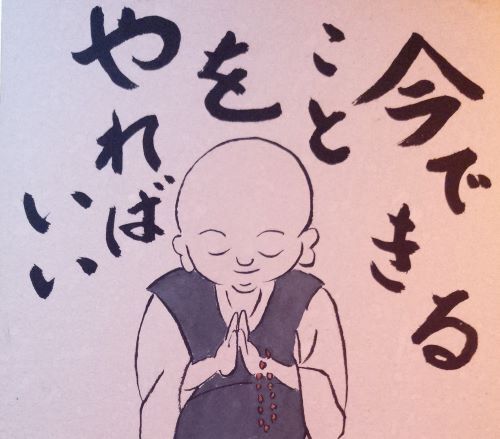 今できる
こと
を
やれば
いい